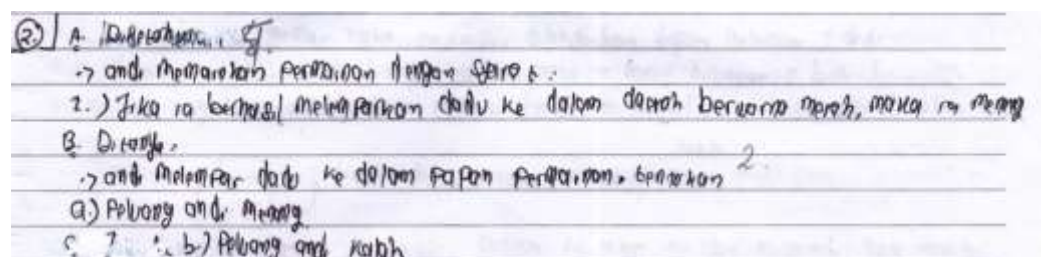 2. A. Diketahui..
-> andi memainkan permainan dengan syarat :
1.) Jika ia berhasil melemparkan dadu ke dalam daerah berwarna merah, maka ia menang
B. Ditanya.
-> andi melempar dadu ke dalam papan permainan. tentukan
2.
a.) Peluang andi menang
C. ? : b.) Peluang andi kalah